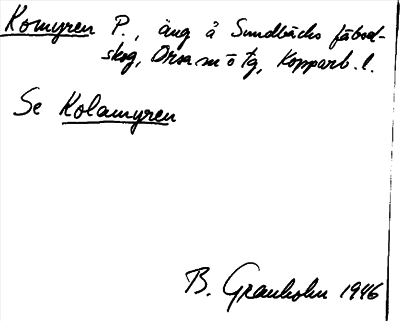 Komyren P., äng å Sundbäcks fäbod-
skog, Orsa sn ö tg, Kopparb. l.
Se Kolamyren
B. Granholm 1946